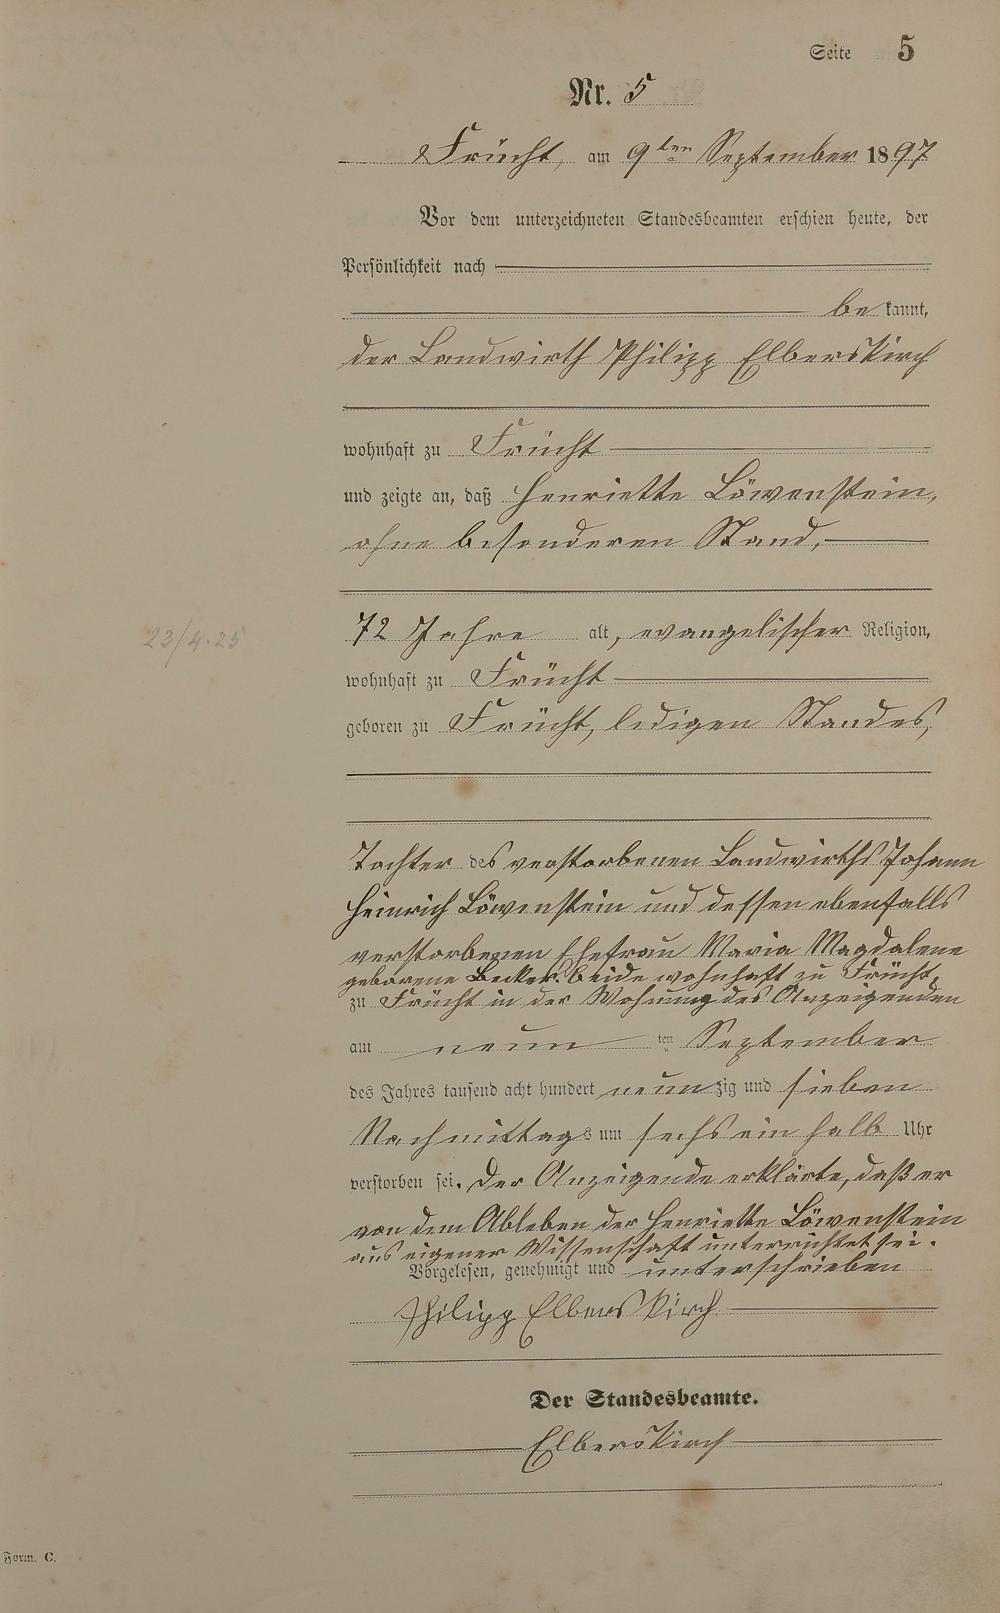 Seite 5
Nr. 5
Frücht, am 9ten September 1897
Vor dem unterzeichneten Standesbeamten erschien heute, der
Persönlichkeit nach
be kannt,
der Landwirth Philipp Elberskirch
wohnhaft zu Frücht
und zeigte an, daß Henriette Löwenstein,
ohne besonderen Stand,
23/4.25
72 Jahre alt, evangelischer Religion,
wohnhaft zu Frücht
geboren zu Frücht, ledigen Standes,
Tochter des verstorbenen Landwirths Johann
Heinrich Löwenstein und dessen ebenfalls
verstorbenen Ehefrau Maria Magdalene
geborene Becker. beide wohnhaft zu Frücht,
zu Frücht in der Wohnung des Anzeigenden
am neun ten September
des Jahres tausend acht hundert neunzig und sieben
Nachmittags um sechs ein halb Uhr
verstorben sei. Der Anzeigende erklärte, daß er
von dem Ableben der Henriette Löwenstein
aus eigener Wissenschaft unterrichtet sei.
Vorgelesen, genehmigt und unterschrieben
Philipp Elberskirch
Der Standesbeamte.
Elberskirch
Form. C.